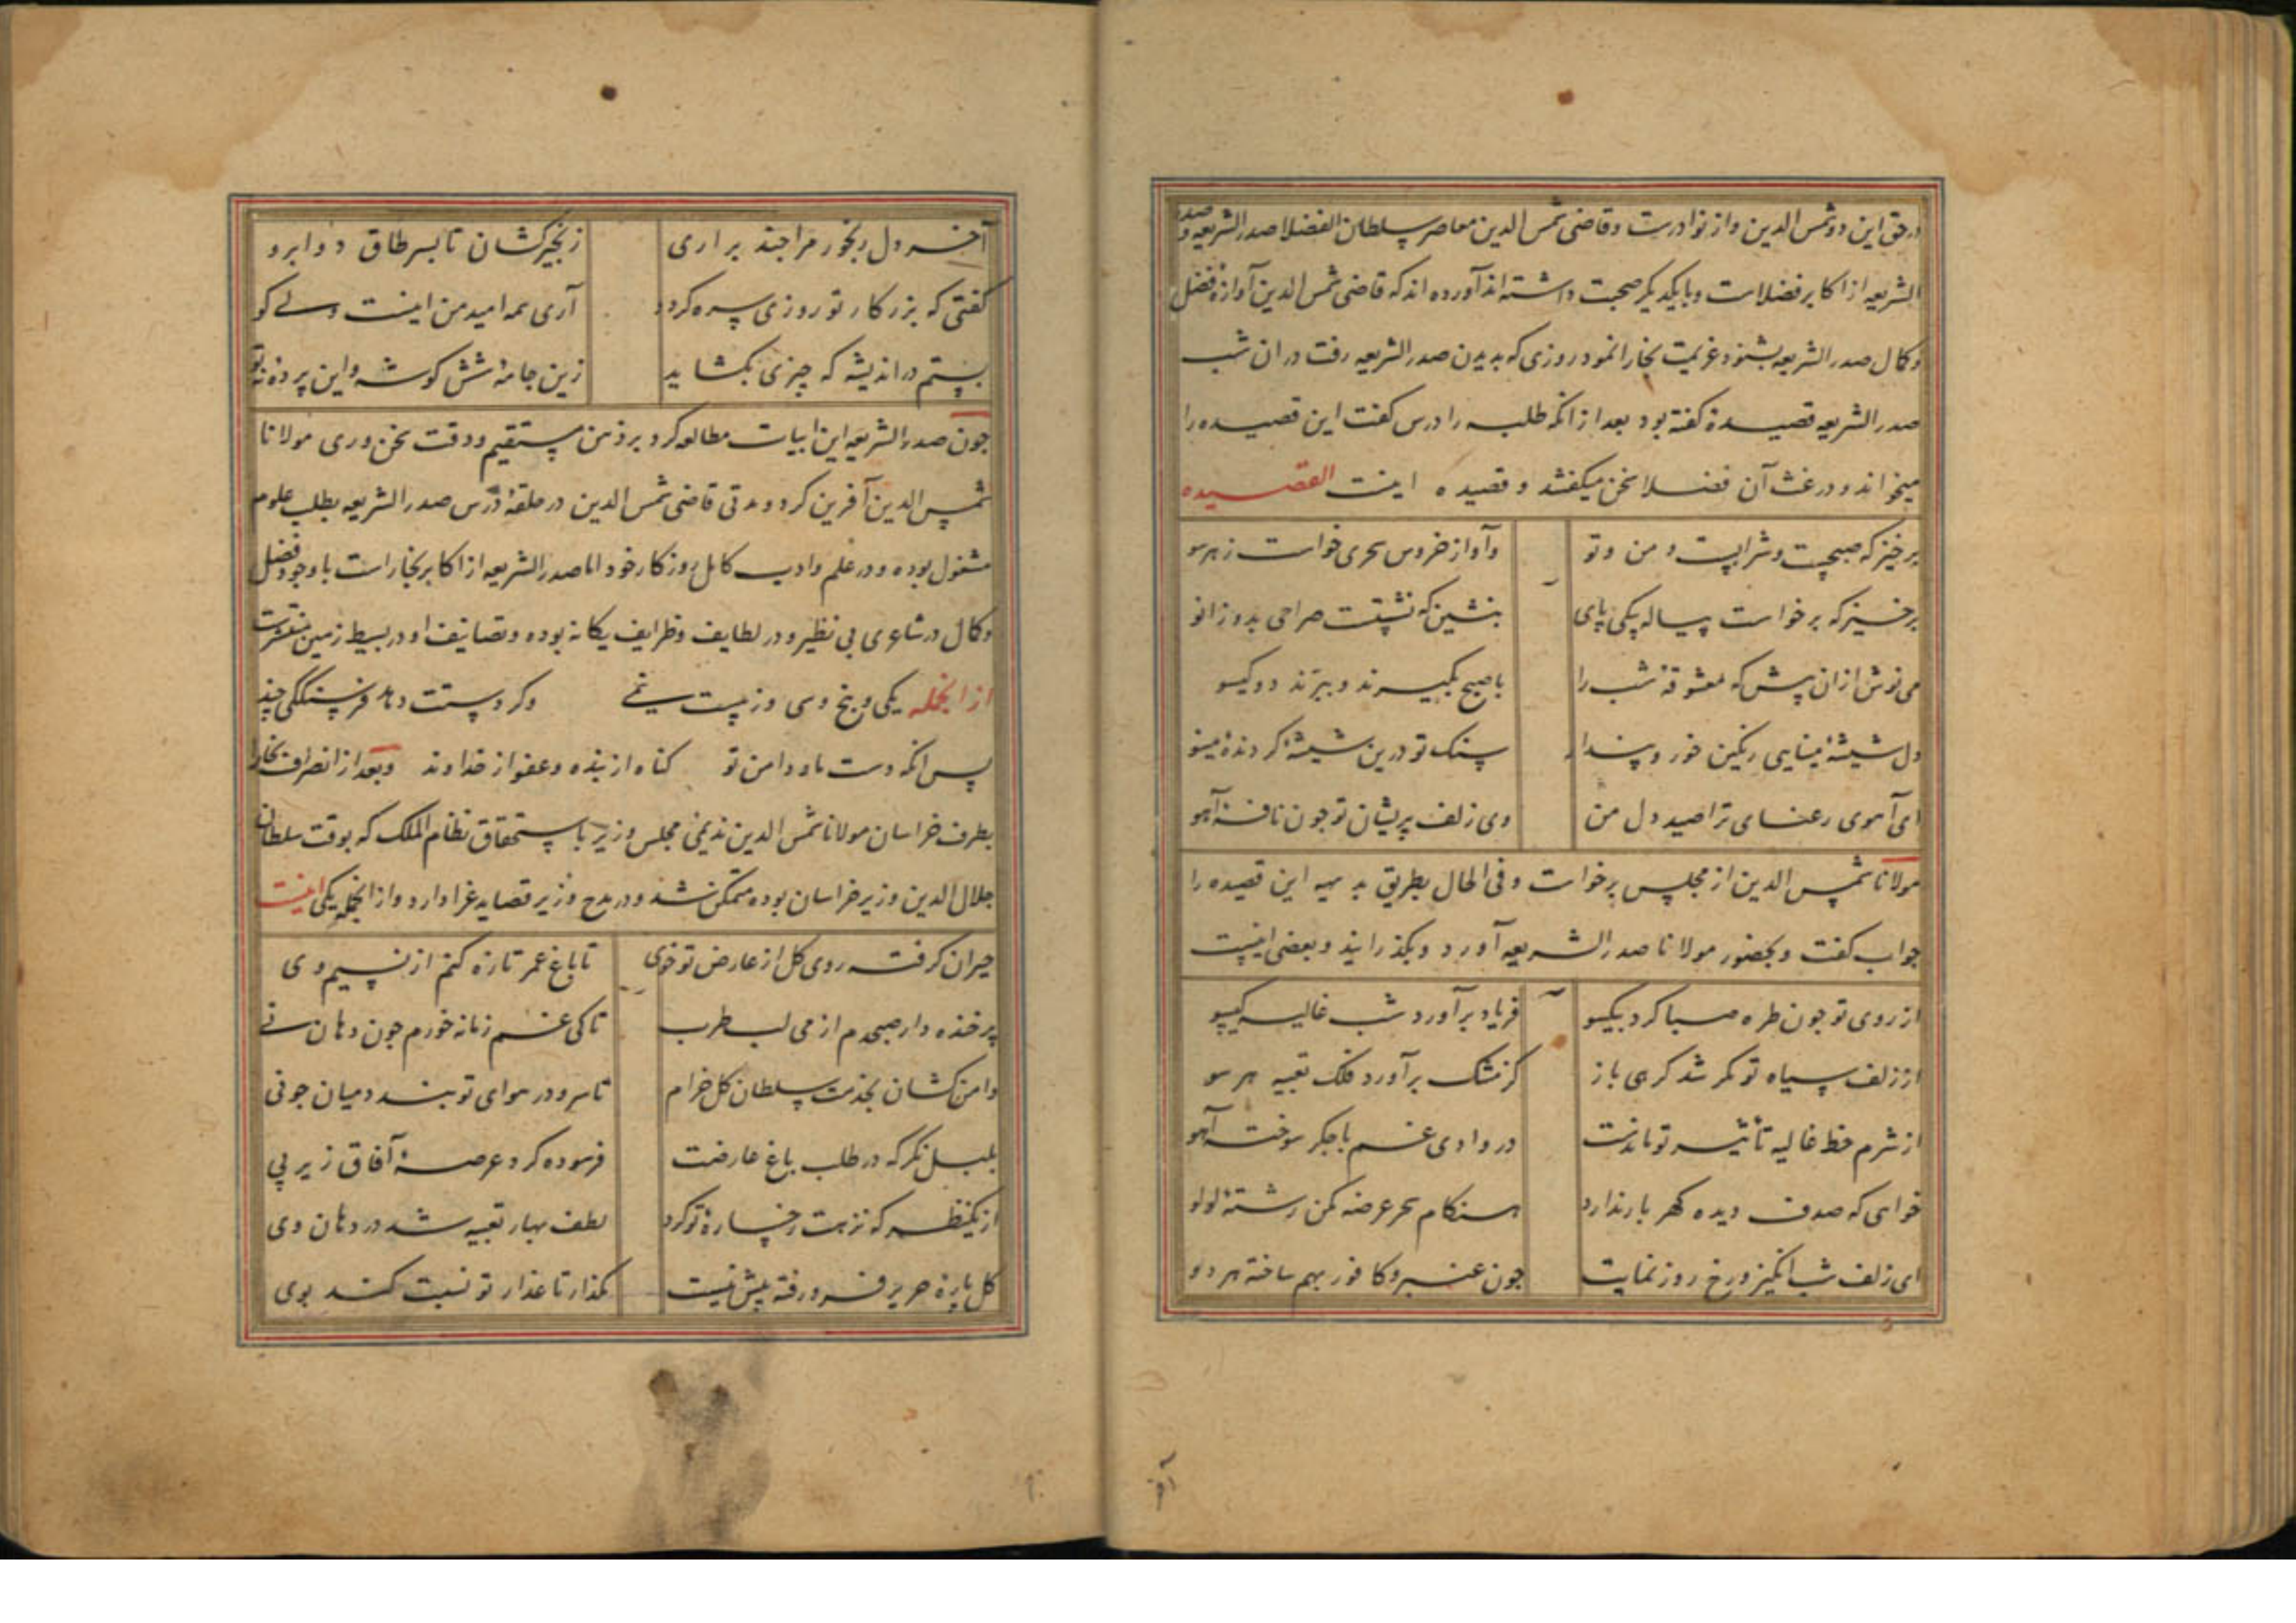 در حق این دو شمس الدین و از نوادرست و قاضی شمس الدین معاصر سلطان الفضلا صدر الشریعه و صدر
الشریعه از اکابر فضلاست و با یکدیگر صحبت داشته اند آورده اند که قاضی شمس الدین آوازه فضل
و کمال صدر الشریعه بشنود عزیمت بخارا نمود روزی که بدیدن صدر الشریعه رفت در ان شب
صدر الشریعه قصیدۀ گفته بود بعد از انکه طلبه را درس گفت این قصیده را
میخواند و در غث آن فضلا سخن میگفتند و قصیده اینست القصیده
برخیز که صبحست و شرابست و من و تو وآواز خروس سحری خواست ز هر سو
برخیز که برخواست پیاله بیکی پای بنشین که نشستت صراحی بدو زانو
می نوش ازان پیش که معشوقه شب را با صبح بگیرند و ببرند دو گیسو
دل شیشۀ مینایی رنگین خور و پندار سنگ تو درین شیشۀ گردنده مینو
ای آهوی رعنای ترا صید دل من وی زلف پریشان تو چون نافۀ آهو
مولانا شمس الدین از مجلس برخواست و فی الحال بطریق بدیهه این قصیده را
جواب گفت و بحضور مولانا صدر الشریعه آورد و بگذرانید و بعضی اینست
از روی تو چون طره صبا کرد بیکسو فریاد برآورد شب غالیه گیسو
از زلف سیاه تو مگر شد گرهی باز کز مشک برآورد فلک تعبیه هر سو
از شرم خط غالیه تأثیر تو ماندست در وادی غم با جگر سوخته آهو
خواهی که صدف دیده گهر بار ندارد هنگام سحر عرضه مکن رشتۀ لولو
ای زلف شب انگیز و رخ روز نمایت چون عنبر و کافور بهم ساخته هر دو
آخر
آخر دل رنجور مرا چند براری زنجیر کشان تا بسر طاق دو ابرو
گفتی که بزر کار تو روزی سره گردد آری همه امید من اینست ولی کو
بستم در اندیشه که چیزی نگشاید زین جامۀ شش گوشه و این پرده نه تو
چون صدر الشریعه این ابیات مطالعه کرد بر ذهن مستقیم و دقت سخن وری مولانا
شمس الدین آفرین کرد و مدتی قاضی شمس الدین در حلقۀ درس صدر الشریعه بطلب علوم
مشغول بوده و در علم و ادب کامل روزگار خود اما صدر الشریعه از اکابر بخاراست با وجود فضل
و کمال در شاعری بی نظیر و در لطایف و ظرایف یگانه بوده و تصانیف او در بسیط زمین منتشرست
از انجمله یکی و پنج و سی و ز بیست نیمی وگر دستت دهد فرسنگکی چند
پس انکه دست ما و دامن تو گناه از بنده و عفو از خداوند وبعد از انصراف بخارا
بطرف خراسان مولانا شمس الدین ندیمی مجلس وزیر باستحقاق نظام الملک که بوقت سلطان
جلال الدین وزیر خراسان بوده متمکن شد و در مدح وزیر قصاید غرا دارد و از انجمله یکی اینست
حیران گرفت روی گل از عارض تو خوی تا باغ عمر تازه کنم از نسیم وی
پر خنده دار صبحدم از می لب طرب تا کی غم زمانه خورم چون دهان نی
دامن کشان بخدمت سلطان گل خرام تا سرو در هوای تو بندد میان چو نی
بلبل نگر که در طلب باغ عارضت فرسوده کرد عرصۀ آفاق زیر پی
از یکنظر که نزهت رخسارۀ تو کرد لطف بهار تعبیه شد در دهان وی
گل پارۀ حریر فرو رفته بیش نیست مگذار تا عذار تو نسبت کند بوی